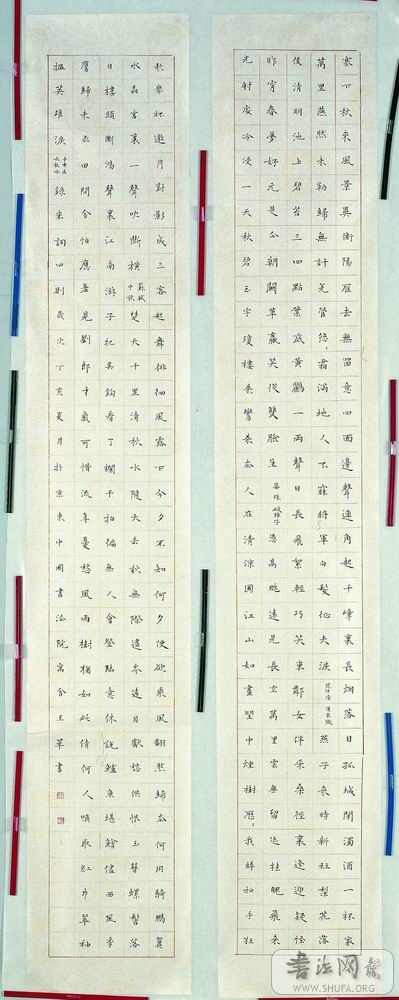 塞下秋來風景異衡陽雁去無留意四面邊聲連角起千嶂裏長烟落日孤城閉濁酒一杯家
萬里燕然未勒歸無計羌管悠:霜滿地人不寐將軍白髮征夫淚范仲淹 漁家傲燕子來時新社梨花落
後清明池上碧苔三四點葉底黃鸝一兩聲日長飛絮輕巧笑東鄰女伴采桑徑裏逢迎疑怪
昨宵春夢好元是今朝鬬草贏笑從雙臉生晏殊 破陣子憑高眺遠見長空萬里雲無留迹桂魄飛來
光射處冷浸一天秋碧玉宇瓊樓乘鸞來去人在清涼國江山如畫望中煙樹歷:我醉拍手狂
歌舉杯邀月對影成三客起舞徘徊風露下今夕不知何夕便欲乘風翻然歸去何用騎鵬翼
水晶宮裏一聲吹斷橫蘇軾 中秋楚天千里清秋水隨天去秋無際遙岑遠目獻愁供恨玉簪螺髻落
日樓頭斷鴻聲裏江南游子把吳鈎看了欄干拍徧無人會登臨意休說鱸魚堪鱠儘西風季
鷹歸未求田問舍怕應羞見劉郎才氣可惜流年憂愁風雨樹猶如此倩何人喚取紅巾翠袖
揾英雄淚辛棄疾 水龍吟錄宋詞四則歲次丁亥夏月於京東中國書法院寓舍王華書
書法网
WWW.SHUFA.ORG